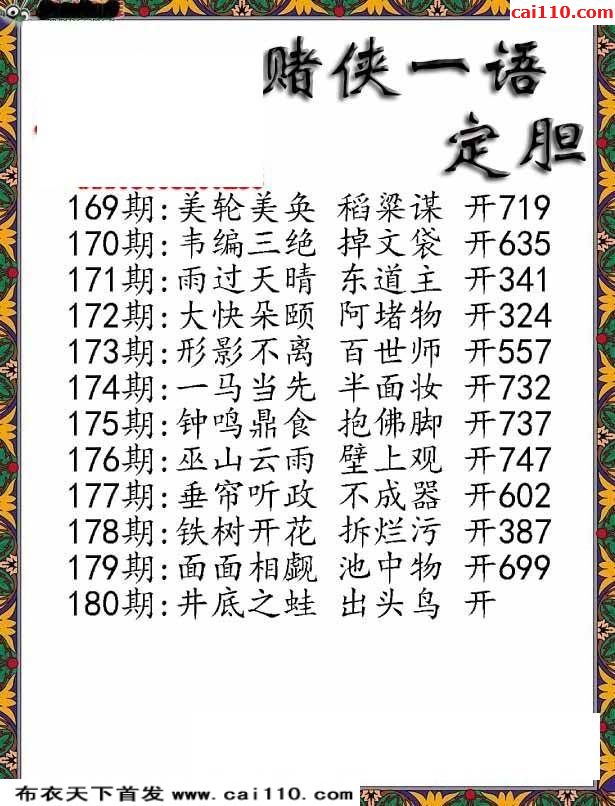 cai110.com
赌侠一语
定胆
169期:美轮美奂 稻粱谋 开719
170期:韦编三绝 掉文袋 开635
171期:雨过天晴 东道主 开341
172期:大快朵颐 阿堵物 开324
173期:形影不离 百世师 开557
174期:一马当先 半面妆 开732
175期:钟鸣鼎食 抱佛脚 开737
176期:巫山云雨 壁上观 开747
177期:垂帘听政 不成器 开602
178期:铁树开花 拆烂污 开387
179期:面面相觑 池中物 开699
180期:井底之蛙 出头鸟 开
布衣天下首发 www.cai110.com